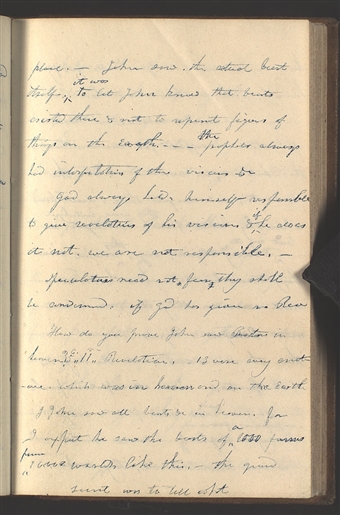 place. — John saw the actual beast
itself, it was to let John know that beasts
existed there & not to represent figures of
things on the Earth. — the prophets always
had interpretations of their visions &c
God always holds himself responsible
to give revelations of his visions & if he does
it not. we are not responsible. —
Speculators need not fear they shall
be condemned. if God has given no Reve
How do you prove John saw creatures in
heaven? 5. C. 11. v. Revelation. 13 verse every creat
-ure. which was in heaven and on the Earth
I John saw all beasts &c in heaven. for
I expect he saw the beasts of a 1000 forms
from 10000 worlds like this. — the grand
secret was to tell what